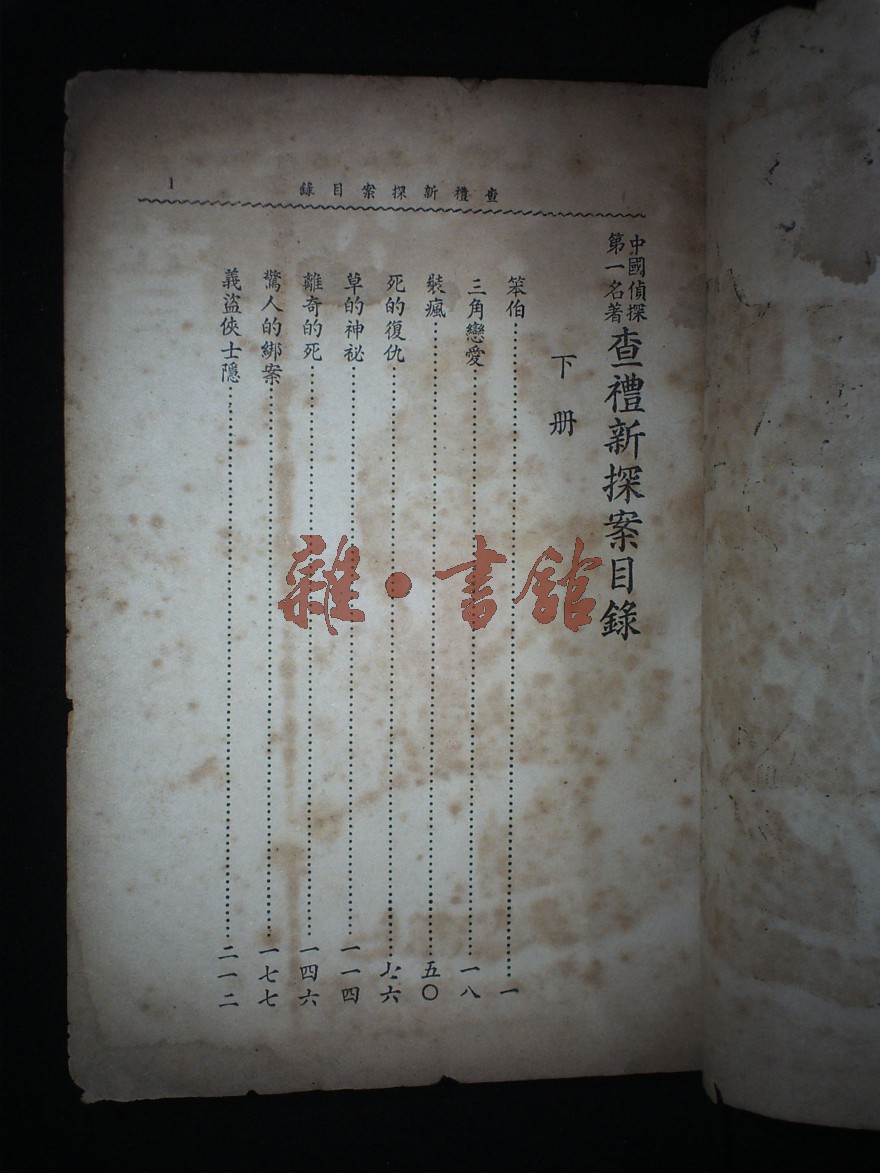 查禮新探案目錄 1
中國偵探
第一名著
查禮新探案目錄
下册
笨伯……一
三角戀愛……一八
裝瘋……五〇
死的復仇……六
草的神祕……一一四
離奇的死……一四六
驚人的綁案……一七七
義盜俠士隱……二一二
雜·書館